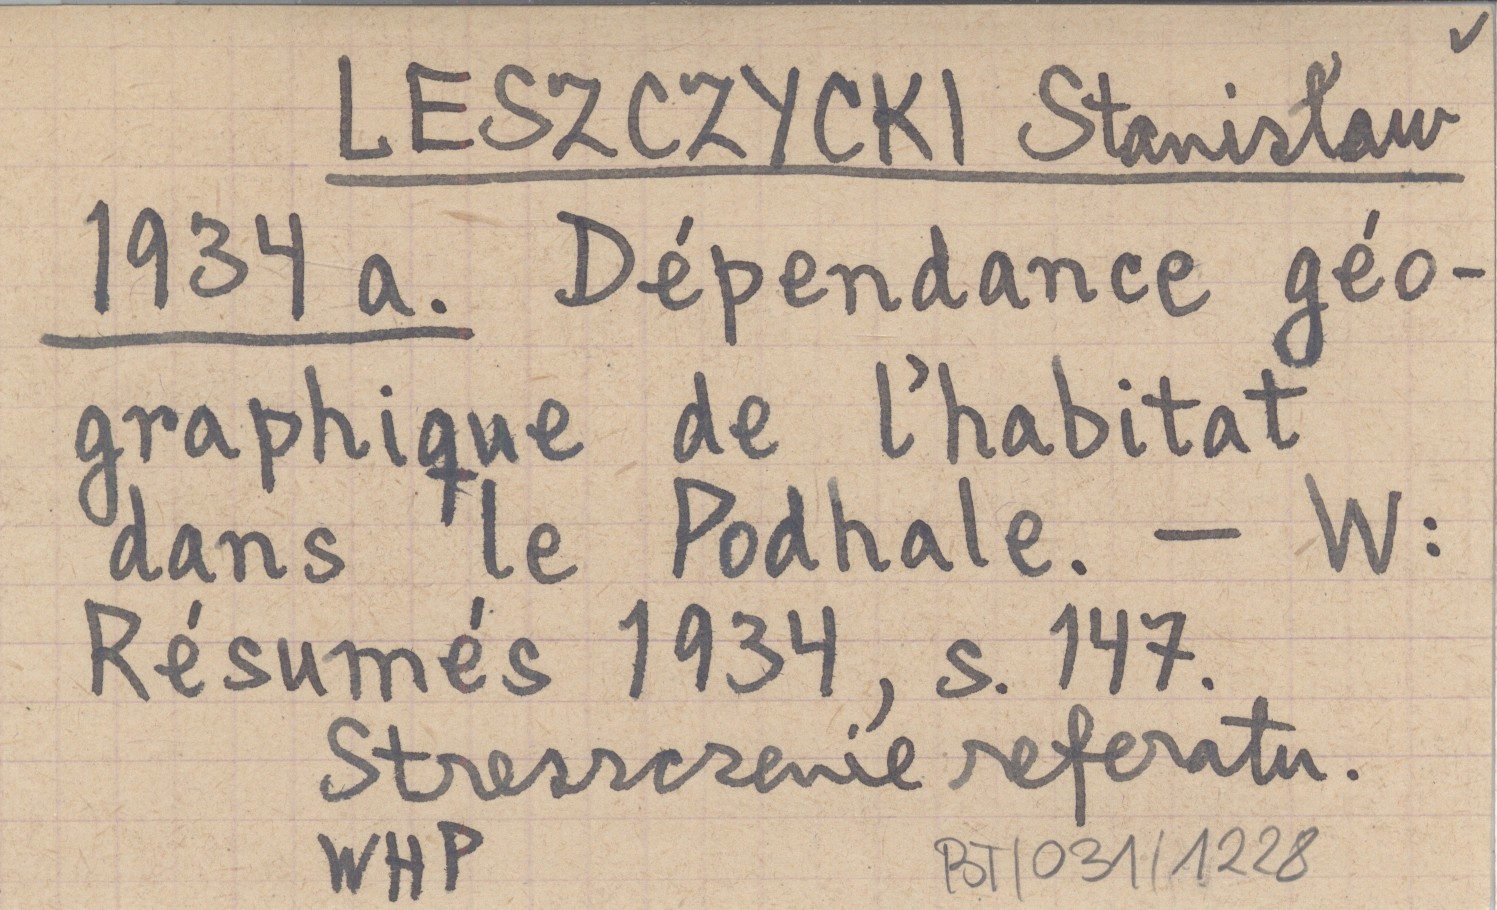 LESZCZYCKI Stanisław
1934 a. Dépendance géo-
graphique de l'habitat
dans le Podhale. – W:
Résumés 1934, s. 147.
Streszczenie referatu.
WHP
BT/031/1228